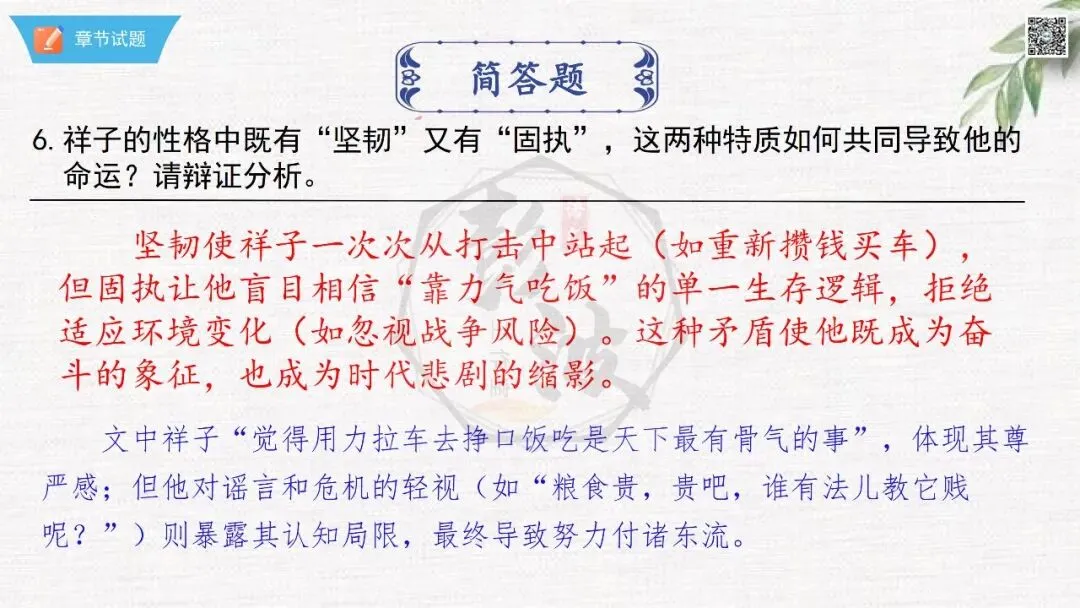 章节试题
简答题
6.祥子的性格中既有“坚韧”又有“固执”，这两种特质如何共同导致他的
命运？请辩证分析。
坚韧使祥子一次次从打击中站起（如重新攒钱买车），
但固执让他盲目相信“靠力气吃饭”的单一生存逻辑，拒绝
适应环境变化（如忽视战争风险）。这种矛盾使他既成为奋
斗的象征，也成为时代悲剧的缩影。
文中祥子“觉得用力拉车去挣口饭吃是天下最有骨气的事”，体现其尊
严感；但他对谣言和危机的轻视（如“粮食贵，贵吧，谁有法儿教它贱
呢？”）则暴露其认知局限，最终导致努力付诸东流。